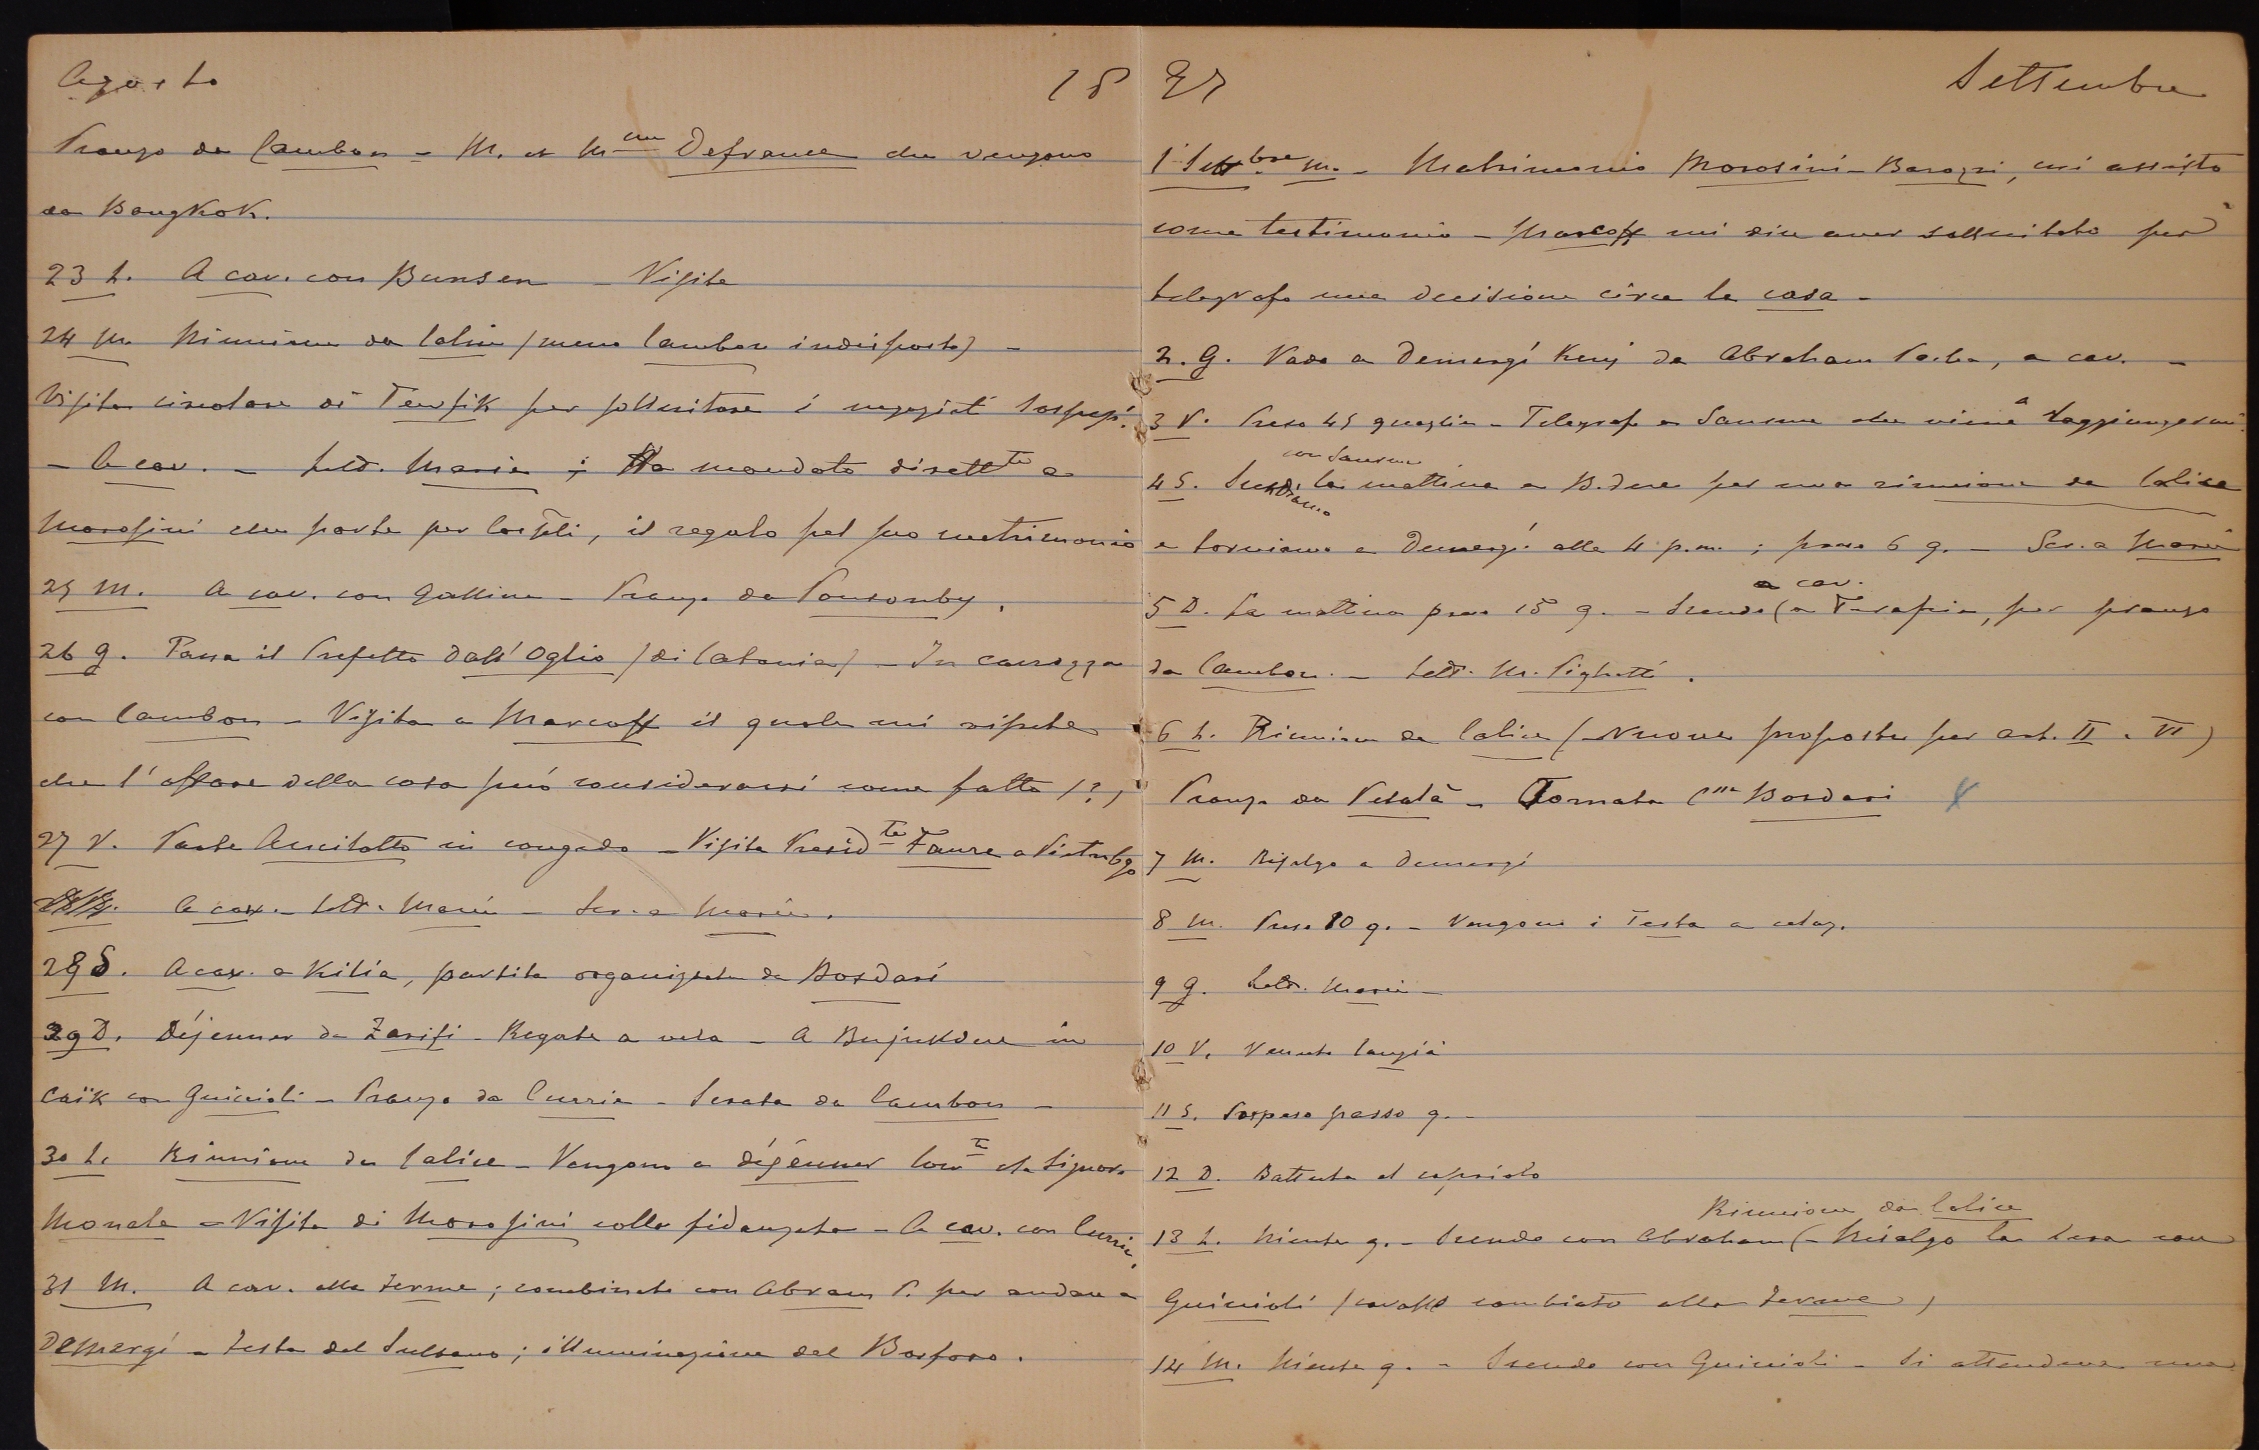 Agosto 18
Pranzo da Cambon - M. et M.me Defrance che vengono
da Bangkok.
23 L. A cav. con Bunsen - Visite
24 M. Riunione da Calice (meno Cambon indisposto) -
Visita circolare di Tewfik per sollecitare i negoziati sospesi.
- A cav. - Lett. Marie ; Ha mandato dirett.te a
Morosini che parte per Cospoli, il regalo pel suo matrimonio
25 M. A cav. con Gallina - Pranzo da Ponsonby.
26 G. Passa il Prefetto Dall'Oglio (di Catania) - In carrozza
con Cambon - Visita a Marcoff il quale mi ripete
che l'affare della casa può considerarsi come fatto (?)
27 V. Parte Ancilotto in congedo - Visita Presid.te Faure a Pietrobgo
A cav. - Lett. Marie - Scr. a Marie.
28 S. A cav. a Kilia, partita organizzata da Bosdari
29 D. Déjeuner da Zarifi - Regate a vela - A Bujukdere in
Caïk con Guiccioli - Pranzo da Currie - Serata da Cambon -
30 L. Riunione da Calice - Vengono a déjeuner Com.te e la Signora
Monale - Visita di Morosini colla fidanzata - A cav. con Currie.
31 M. A cav. alla ferme ; combinato con Abram P. per andare a
Demergi - Festa del Sultano ; illuminazione del Bosforo.
97 Settembre
1 Settbre M. - Matrimonio Morosini - Barozzi, cui assisto
come testimonio - Marcoff mi dice aver sollecitato per
telegrafo una decisione circa la casa -
2. G. Vado a Demergi Keuj da Abraham Pacha, a cav. -
3 V. Preso 45 quaglie - Telegrafo a Sanson che viene a raggiungermi.
4 S. Scendiamo con Sanson la mattina a B.dere per una riunione da Calice
e torniamo a Demergi alle 4 p.m. ; preso 6 q. - Scr. a Marie
5 D. La mattina preso 15 q. - Scendo (a cav. a Terapia, per pranzo
da Cambon. - Lett. M. Pighetti.
6 L. Riunione da Calice (Nuove proposte per art. II e VI)
Pranzo da Vetalà - Tornata C.ssa Bosdari X
7 M. Risalgo a Demergi
8 M. Preso 80 q. - Vengono i Testa a colaz.
9 G. Lett. Marie -
10 V. Venuto Cangià
11 S. Sospeso passo q. -
12 D. Battuta al capriolo
13 L. Niente q. - Scendo con Abraham (Riunione da Calice - Risalgo la sera con
Guiccioli (cavallo cambiato alla ferme)
14 M. Niente q. - Scendo con Guiccioli - Si attendeva una